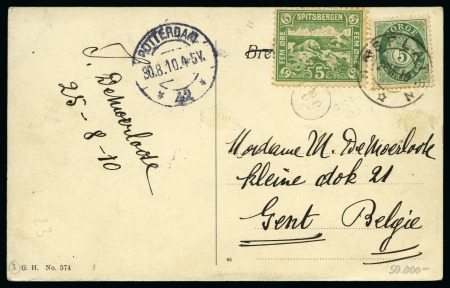 ROTTERDAM
30.8.10.4-5V.
42
SPITSBERGEN
FEM ØRE FEM ØRE
5
NORGE
5
J. DeMoerloode
25-8-10
Madame M. DeMoerloode
kleine dok 21
Gent Belgie
G. H. No. 574
50.000-